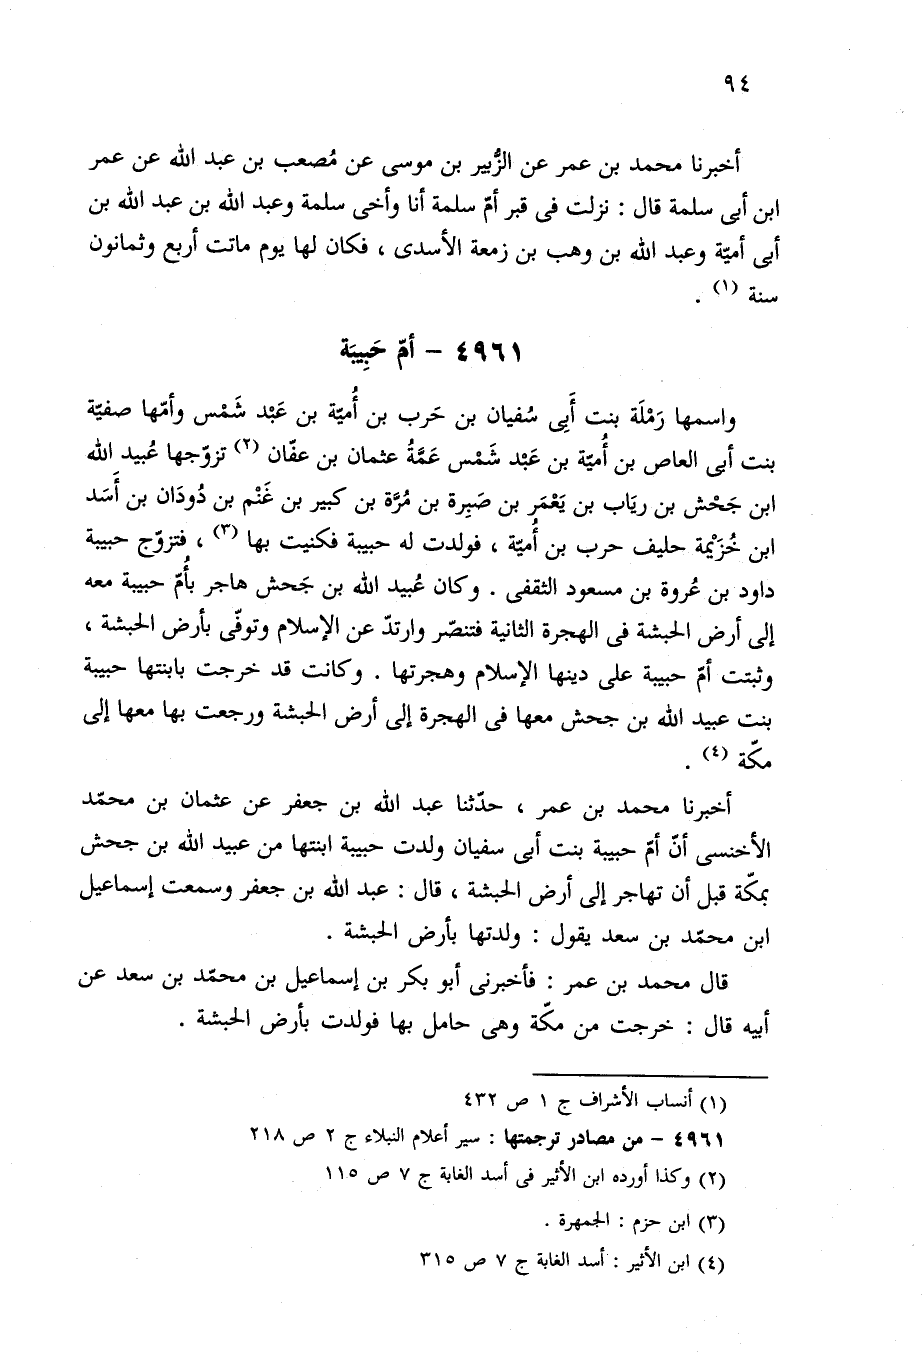 ٩٤
أخبرنا محمد بن عمر عن الزُّبير بن موسى عن مُصعب بن عبد الله عن عمر
ابن أبى سلمة قال : نزلت فى قبر أمّ سلمة أنا وأخى سلمة وعبد الله بن عبد الله بن
أبى أميّة وعبد الله بن وهب بن زمعة الأسدى ، فكان لها يوم ماتت أربع وثمانون
سنة (١) .
٤٩٦١ – أمّ حَبِيبَة
واسمها رَمْلَة بنت أَبِى سُفيان بن حَرب بن أُميّة بن عَبْد شَمْس وأمّها صفيّة
بنت أبى العاص بن أُميّة بن عَبْد شَمْس عَمَّةُ عثمان بن عفّان (٢) تزوّجها عُبيد الله
ابن جَحْش بن رياب بن يَعْمَر بن صَبِرة بن مُرَّة بن كبير بن غَنْم بن دُودَان بن أَسَد
ابن خُزَيْمة حليف حرب بن أُميّة ، فولدت له حبيبة فكنيت بها (٣) ، فتزوّج حبيبة
داود بن عُروة بن مسعود الثقفى . وكان عُبيد الله بن جَحش هاجر بأُمّ حبيبة معه
إلى أرض الحبشة فى الهجرة الثانية فتنصّر وارتدّ عن الإسلام وتوفّى بأرض الحبشة ،
وثبتت أمّ حبيبة على دينها الإسلام وهجرتها . وكانت قد خرجت بابنتها حبيبة
بنت عبيد الله بن جحش معها فى الهجرة إلى أرض الحبشة ورجعت بها معها إلى
مكّة (٤) .
أخبرنا محمد بن عمر ، حدّثنا عبد الله بن جعفر عن عثمان بن محمّد
الأخنسى أنّ أمّ حبيبة بنت أبى سفيان ولدت حبيبة ابنتها من عبيد الله بن جحش
بمكّة قبل أن تهاجر إلى أرض الحبشة ، قال : عبد الله بن جعفر وسمعت إسماعيل
ابن محمّد بن سعد يقول : ولدتها بأرض الحبشة .
قال محمد بن عمر : فأخبرنى أبو بكر بن إسماعيل بن محمّد بن سعد عن
أبيه قال : خرجت من مكّة وهى حامل بها فولدت بأرض الحبشة .
(١) أنساب الأشراف ج ١ ص ٤٣٢
٤٩٦١ – من مصادر ترجمتها : سير أعلام النبلاء ج ٢ ص ٢١٨
(٢) وكذا أورده ابن الأثير فى أسد الغابة ج ٧ ص ١١٥
(٣) ابن حزم : الجمهرة .
(٤) ابن الأثير : أسد الغابة ج ٧ ص ٣١٥